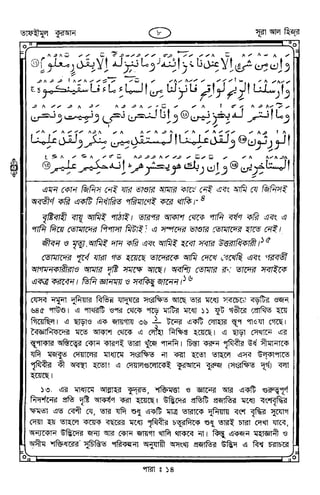 তাফহীমুল কুরআন ৮ সূরা আল হিজর
وَإِنْ مِّنْ شَيْءٍ إِلَّا عِنْدَنَا خَزَائِنُهُ وَمَا نُنَزِّلُهُ إِلَّا بِقَدَرٍ مَّعْلُومٍ
وَأَرْسَلْنَا الرِّيٰحَ لَوَاقِحَ فَأَنْزَلْنَا مِنَ السَّمَاءِ مَاءً فَأَسْقَيْنٰكُمُوهُ
وَمَا أَنْتُمْ لَهُ بِخٰزِنِينَ وَإِنَّا لَنَحْنُ نُحْيِ وَنُمِيتُ وَنَحْنُ
الْوٰرِثُونَ وَلَقَدْ عَلِمْنَا الْمُسْتَقْدِمِينَ مِنْكُمْ وَلَقَدْ عَلِمْنَا
الْمُسْتَأْخِرِينَ وَإِنَّ رَبَّكَ هُوَ يَحْشُرُهُمْ إِنَّهُ حَكِيمٌ عَلِيمٌ
এমন কোন জিনিস নেই যার ভাণ্ডার আমার কাছে নেই এবং আমি যে জিনিসই
অবতীর্ণ করি একটি নির্ধারিত পরিমাণেই করে থাকি।১৪
বৃষ্টিবাহী বায়ু আমিই পাঠাই। তারপর আকাশ থেকে পানি বর্ষণ করি এবং এ
পানি দিয়ে তোমাদের পিপাসা মিটাই। এ সম্পদের ভাণ্ডার তোমাদের হাতে নেই।
জীবন ও মৃত্যু আমিই দান করি এবং আমিই হবো সবার উত্তরাধিকারী।১৫
তোমাদের পূর্বে যারা গত হয়েছে তাদেরকে আমি দেখে রেখেছি এবং পরবর্তী
আগমনকারীরাও আমার দৃষ্টি সমক্ষে আছে। অবশ্যি তোমার রব তাদের সবাইকে
একত্র করবেন। তিনি জ্ঞানময় ও সবকিছু জানেন।১৬
যেসব নমুনা দুনিয়ার বিভিন্ন যাদুঘরে সংরক্ষিত আছে তার মধ্যে সবচেয়ে বড়টির ওজন
৬৪৫ পাউণ্ড। এ পাথরটি ওপর থেকে পড়ে মাটির মধ্যে ১১ ফুট গভীরে প্রোথিত হয়ে
গিয়েছিল। এ ছাড়াও এক জায়গায় ৩৬ ১/২ টনের একটি লোহার স্তূপ পাওয়া গেছে।
বৈজ্ঞানিকদের মতে আকাশ থেকে এ লোহা নিক্ষিপ্ত হয়েছে। এ ছাড়া সেখানে এর
স্তূপাকার অস্তিত্বের কোন কারণই তারা খুঁজে পাননি। চিন্তা করুন পৃথিবীর ঊর্ধ সীমানাকে
যদি মজবুত দেয়ালের মাধ্যমে সংরক্ষিত না করা হতো তাহলে এসব উল্কাপাতে
পৃথিবীর কী অবস্থা হতো! এ দেয়ালগুলোকেই কুরআনে বুরুজ (সংরক্ষিত দুর্গ) বলা
হয়েছে।
১৩. এর মাধ্যমে আল্লাহর কুদরত, শক্তিমত্তা ও জ্ঞানের আর একটি গুরুত্বপূর্ণ
নিদর্শনের প্রতি দৃষ্টি আকর্ষণ করা হয়েছে। উদ্ভিদের প্রতিটি প্রজাতির মধ্যে বংশবৃদ্ধির
ক্ষমতা এত বেশী যে, তার যদি শুধু একটি মাত্র চারাকে দুনিয়ায় বংশ বৃদ্ধির সুযোগ
দেয়া হয় তাহলে কয়েক বছরের মধ্যে পৃথিবীর চতুরদিকে শুধু তারই চারা দেখা যাবে,
অন্যকোন উদ্ভিদের জন্য আর কোন জায়গা খালি থাকবে না। কিন্তু একজন মহাজ্ঞানী ও
অসীম শক্তিধরের সুচিন্তিত পরিকল্পনা অনুযায়ী অসংখ্য প্রজাতির উদ্ভিদ এ বিশ্ব চরাচরে
পারা : ১৪